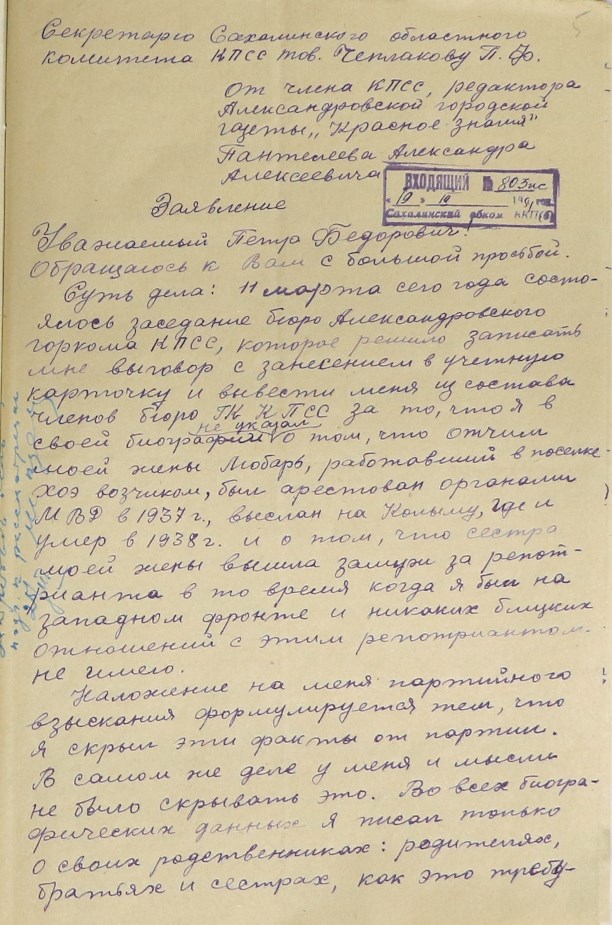 5
Секретарю Сахалинского областного
комитета КПСС тов. Чеплакову П. Ф.
от члена КПСС, редактора
Александровской городской
газеты „Красное знамя"
Пантелеева Александра
Алексеевича
ВХОДЯЩИЙ № 803нс
Сахалинский обком ВКП(б)
Заявление
Уважаемый Петр Федорович!
Обращаюсь к Вам с большой просьбой.
Суть дела: 11 марта сего года состо-
ялось заседание бюро Александровского
горкома КПСС, которое решило записать
мне выговор с занесением в учетную
карточку и вывести меня из состава
членов бюро ГК КПСС за то, что я в
своей биографии не указал о том, что отчим
моей жены Любарь, работавший в поселке
Хоэ возчиком, был арестован органами
МВД в 1937 г., выслан на Колыму, где и
умер в 1938 г. и о том, что сестра
моей жены вышла замуж за репот-
рианта в то время когда я был на
западном фронте и никаких близких
отношений с этим репотриантом
не имею.
Наложение на меня партийного
взыскания формулируется тем, что
я скрыл эти факты от партии.
В самом же деле у меня и мысли
не было скрывать это. Во всех биогра-
фических данных я писал только
о своих родственниках: родителях,
братьях и сестрах, как это требу-